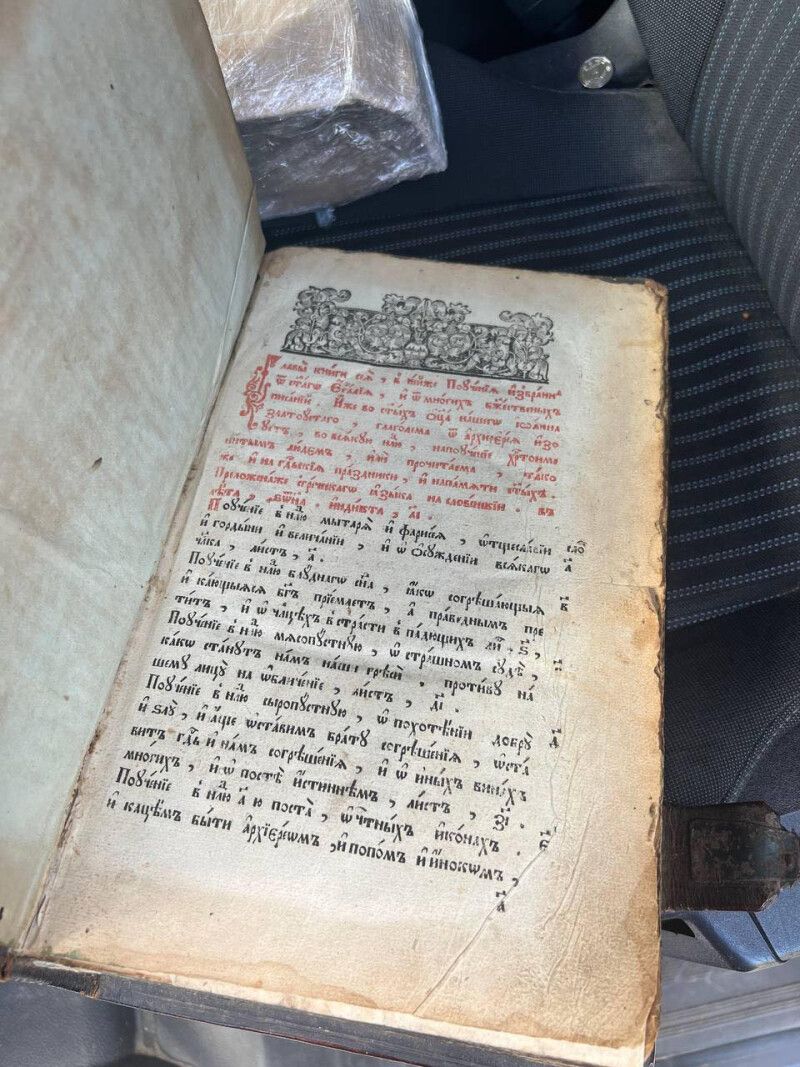 Главы̀ книги сеѧ̀, в̾ не́йже Пооуче́нїѧ и҆збра́нна
ѿ ст҃а́гѡ Еѵⷢ҇лїѧ, и҆ ѿ мно́гихъ бж҃е́ственныхъ
писа́нїй. И҆́же во ст҃ы́хъ ѻ҆ц҃а̀ на́шегѡ і҆ѡа́нна
златоу́стаго, глаго́лема ѿ а҆рхїере́ѧ и҆зо
оу҆́стъ, во всѧ́кꙋю нлⷣю, на пооуче́нїе хрⷭ҇тоиме
ни́тымъ лю́демъ, и҆лѝ прочита́ема, та́ко
же и҆ на гдⷭ҇ьскїѧ пра́здники, и҆ на па́мѧти ст҃ы́хъ.
Преложе́на же ѿ гре́ческагѡ ѧ҆зы́ка на слове́нскїй. въ
лѣ́та, и҆ндї́кта, а҃і.
Пооуче́нїе в̾ нлⷣю мытарѧ̀ и҆ фарисе́ѧ, ѡ҆ тщесла́вїи
и҆ горды́ни и҆ велича́нїи, и҆ ѡ҆ ѡ҆сꙋжде́нїи всѧ́кагѡ
чл҃ка, ли́стъ, а҃.
Пооуче́нїе в̾ нлⷣю блꙋ́днагѡ сн҃а, ꙗ҆́кѡ согрѣша́ющыѧ
и҆ ка́ющыѧсѧ бг҃ъ прїе́млетъ, а҆ пра́веднымъ пре
ти́тъ, и҆ ѡ҆ ча́цѣхъ в̾ стра́сти в̾па́дающих ли́, ѕ҃.
Пооуче́нїе в̾ нлⷣю мѧсопꙋ́стнꙋю, ѡ҆ стра́шномъ сꙋдѣ̀,
ка́кѡ ста́нꙋтъ на́мъ на́ши грѣсѝ. проти́вꙋ на́
шемꙋ лицꙋ̀ на ѡ҆бличе́нїе, ли́стъ, д҃і.
Пооуче́нїе в̾ нлⷣю сыропꙋ́стнꙋю, ѡ҆ похотѣ́нїи добрꙋ̀
и҆ ѕлꙋ̀, и҆ а҆́ще ѡ҆ста́вимъ бра́тꙋ согрѣше́нїѧ, ѡ҆ста́
витъ гдⷭ҇ь и҆ на́мъ согрѣше́нїѧ, и҆ ѡ҆ и҆ны́хъ вина́хъ
мно́гихъ, и҆ ѡ҆ постѣ̀ и҆́стиннѣмъ, ли́стъ, з҃і.
Пооуче́нїе в̾ нлⷣю а҃ ю поста̀, ѡ҆ чтⷭ҇ны́хъ и҆ко́нахъ.
и҆ кацѣ́мъ бы́ти а҆рхїере́ѡмъ, и҆ попо́мъ и҆ и҆́нокѡмъ,